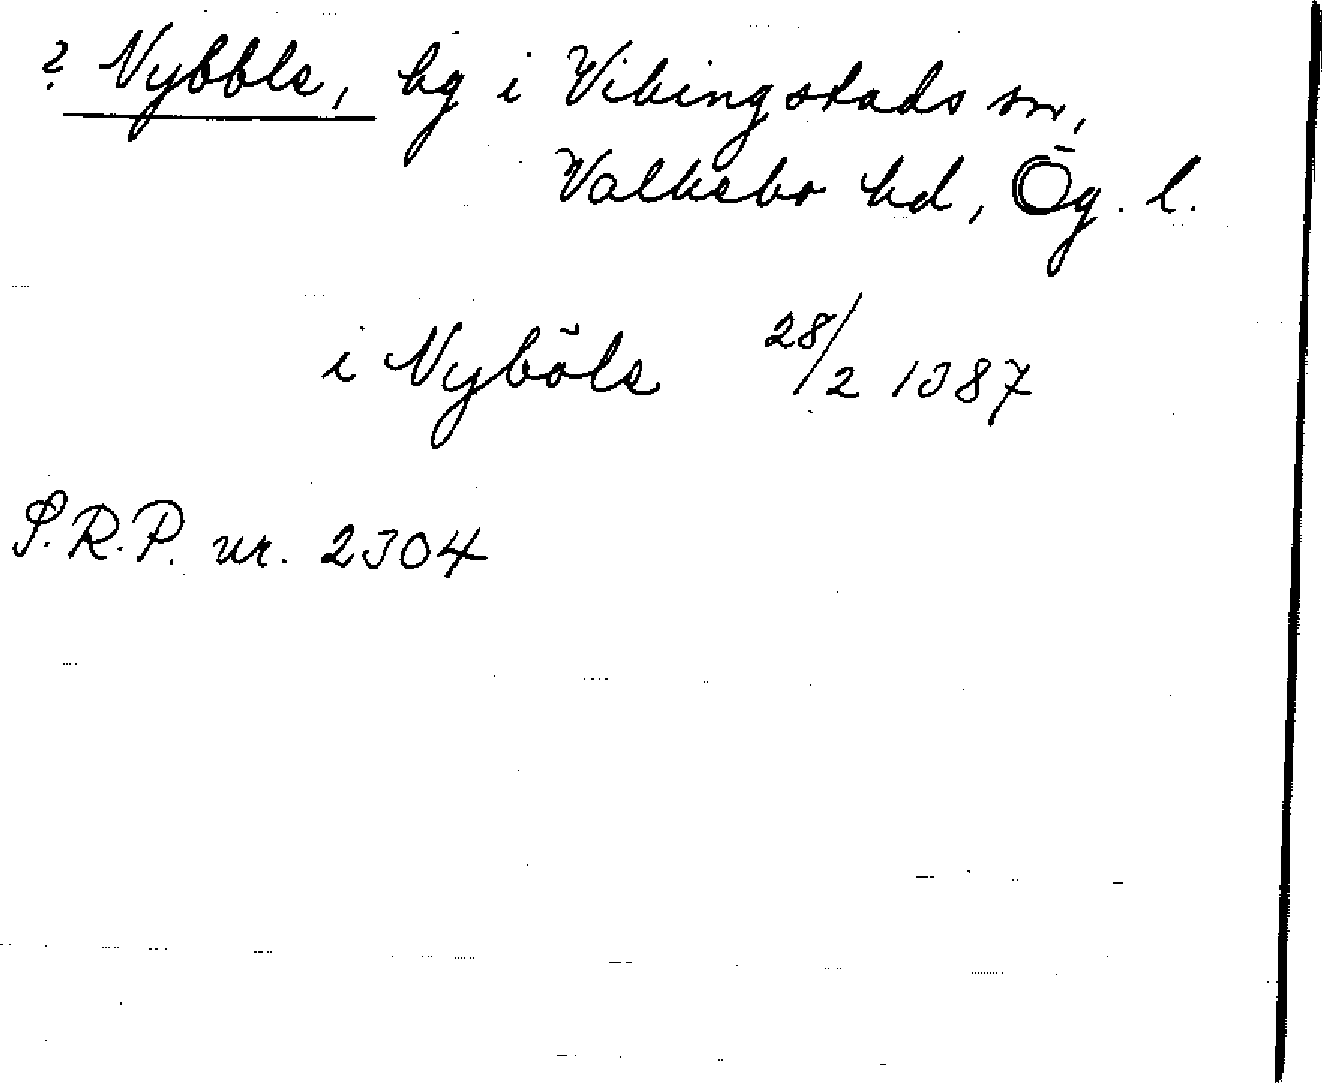 ? Nybble, by i Vikingstads sn,
Valkebo hd, Ög. l.
i Nyböle 28/2 1387
S.R.P. nr. 2304